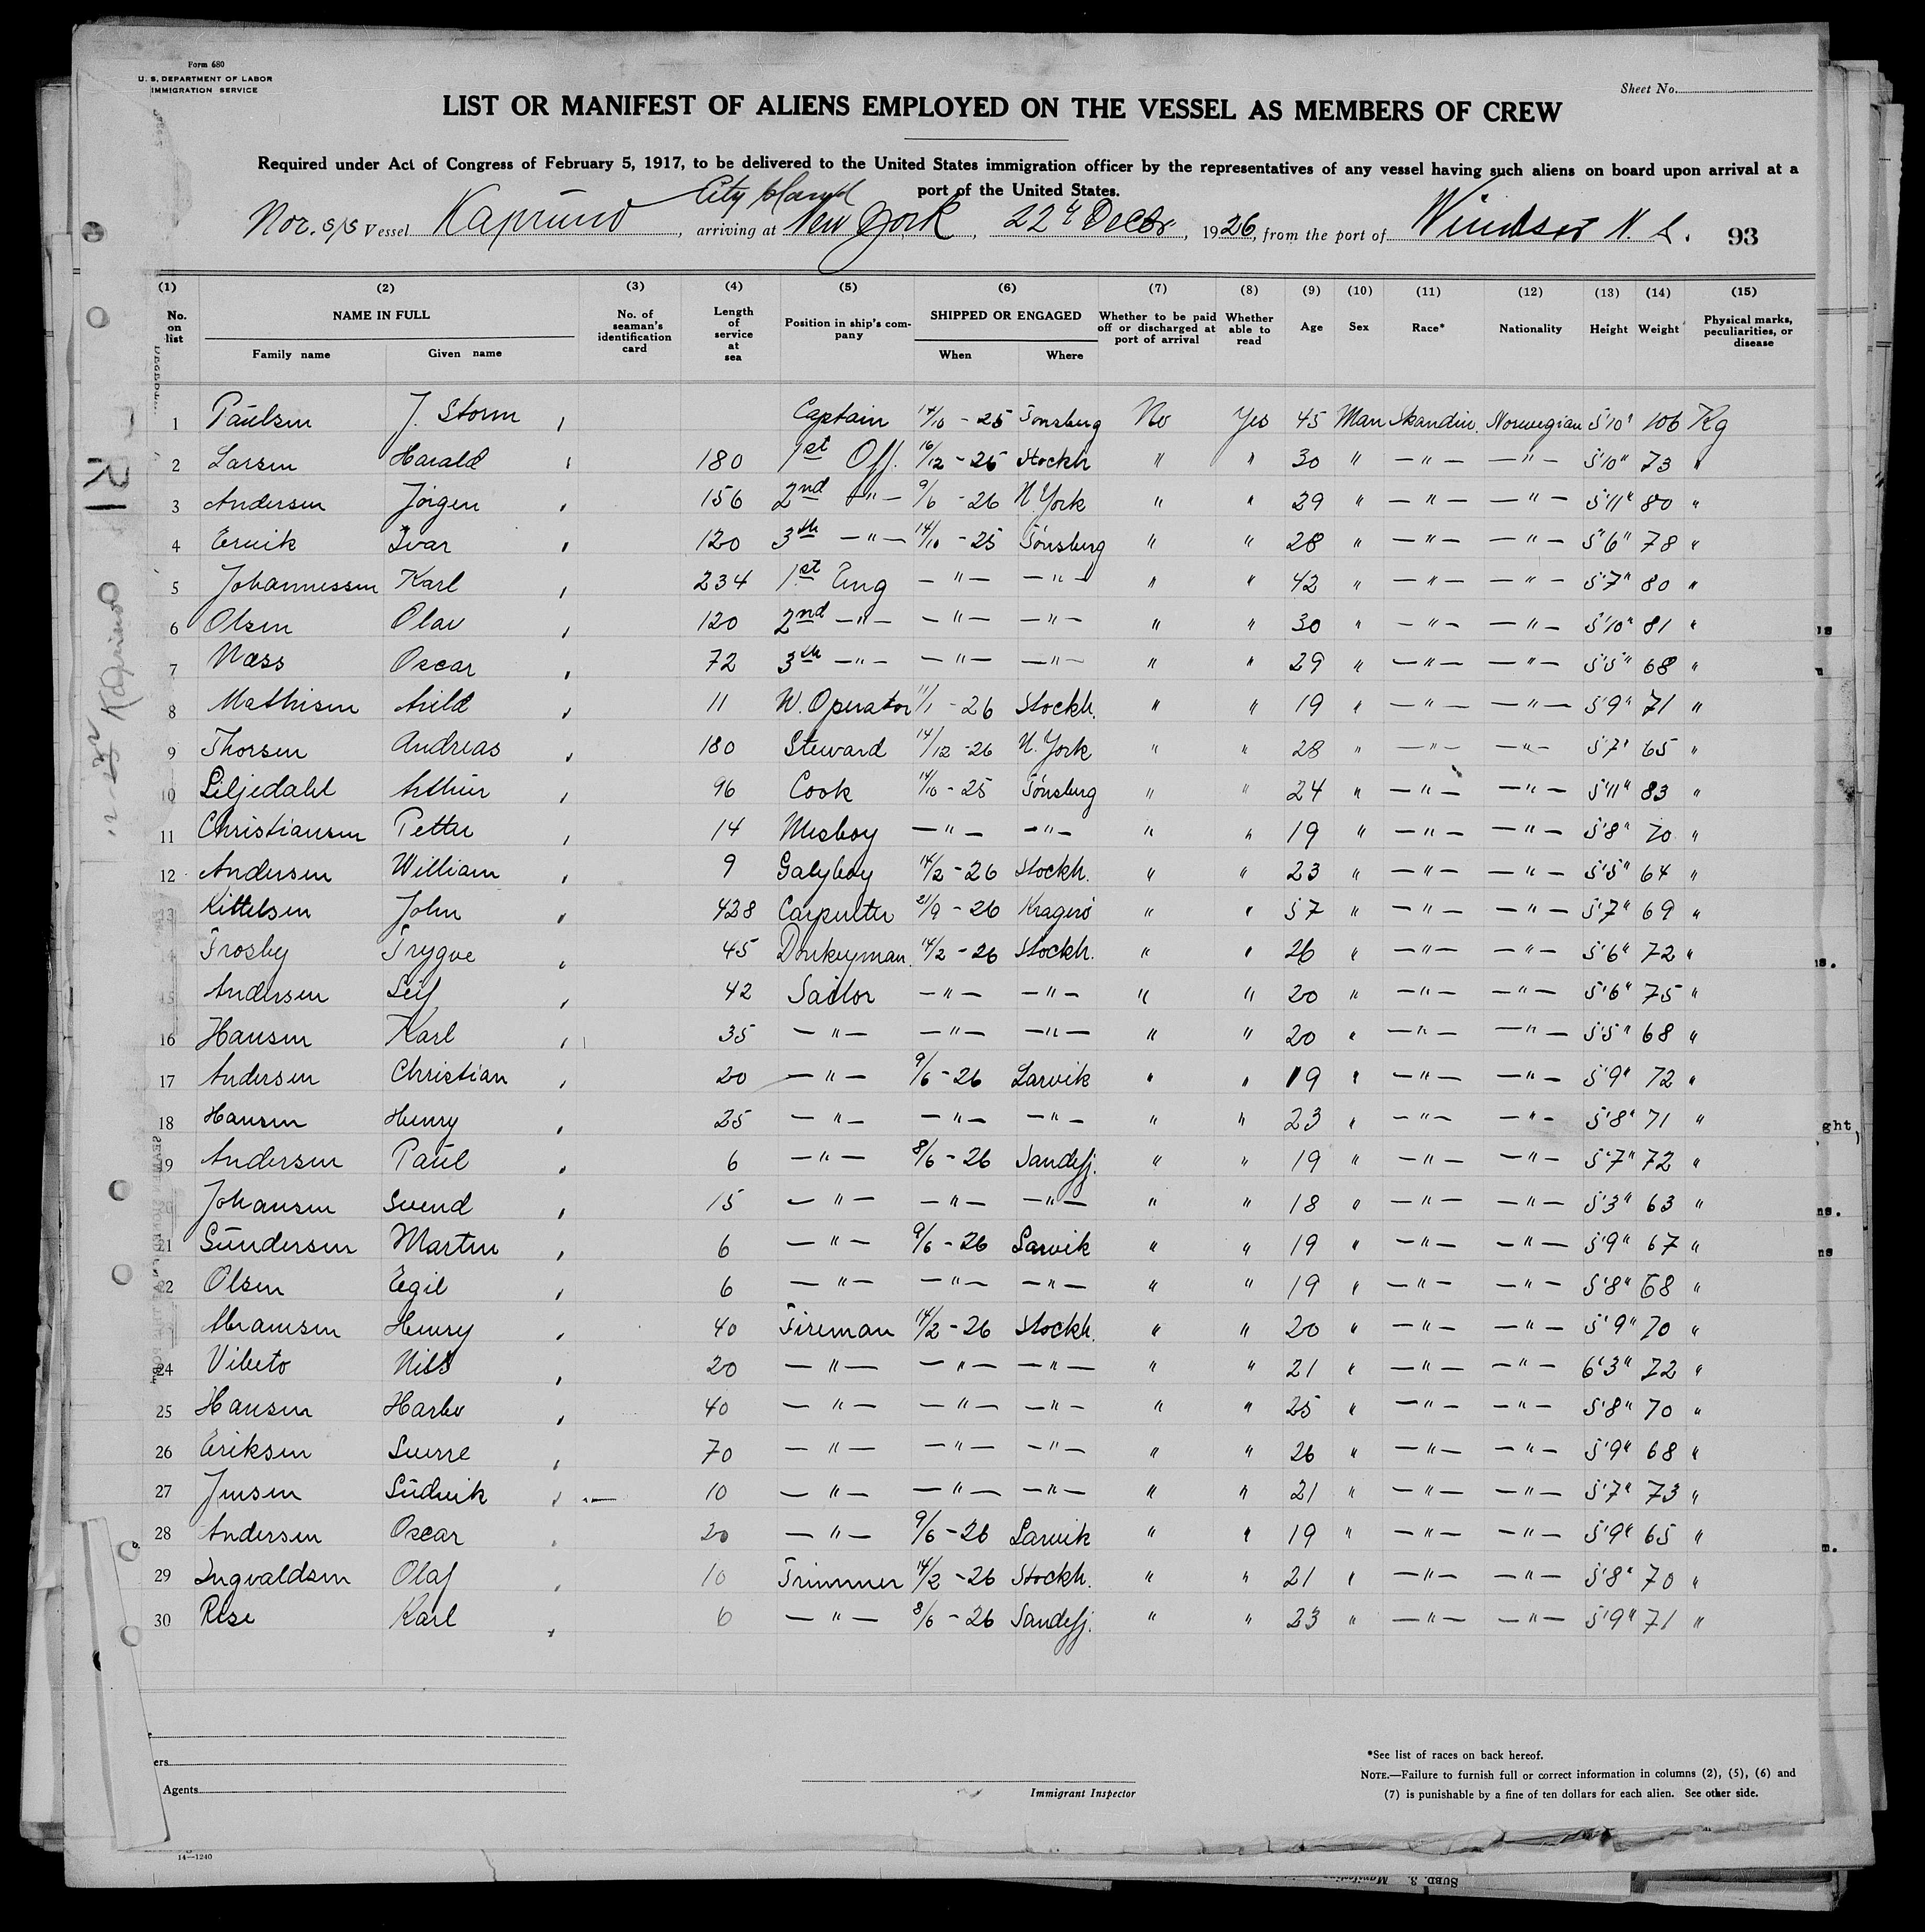 Form 680
U. S. DEPARTMENT OF LABOR
IMMIGRATION SERVICE
Sheet No.
LIST OR MANIFEST OF ALIENS EMPLOYED ON THE VESSEL AS MEMBERS OF CREW
Required under Act of Congress of February 5, 1917, to be delivered to the United States immigration officer by the representatives of any vessel having such aliens on board upon arrival at a
port of the United States.
City Island
Nor. s/s Vessel Kaprino, arriving at New York, 22d Decbr, 1926, from the port of Windsor N. S. 93
(1) (2) (3) (4) (5) (6) (7) (8) (9) (10) (11) (12) (13) (14) (15)
No. on list NAME IN FULL Family name Given name No. of seaman's identification card Length of service at sea Position in ship's company SHIPPED OR ENGAGED When Where Whether to be paid off or discharged at port of arrival Whether able to read Age Sex Race* Nationality Height Weight Physical marks, peculiarities, or disease
1 Paulsen J. Storm Captain 14/10 - 25 Tonsberg No Yes 45 Man Skandin. Norwegian 5'10" 106 Kg
2 Larsen Harald 180 1st Off. 16/12 - 25 Stockh " " 30 " - " - - " - 5'10" 73 "
3 Andersen Jörgen 156 2nd - " - 9/6 - 26 N. York " " 29 " - " - - " - 5'11" 80 "
4 Ervik Ivar 120 3th - " - 14/10 - 25 Tönsberg " " 28 " - " - - " - 5'6" 78 "
5 Johannessen Karl 234 1st Eng - " - - " - " " 42 " - " - - " - 5'7" 80 "
6 Olsen Olav 120 2nd - " - - " - - " - " " 30 " - " - - " - 5'10" 81 "
7 Næss Oscar 72 3th - " - - " - - " - " " 29 " - " - - " - 5'5" 68 "
8 Mathisen Arild 11 W. Operator 11/1 - 26 Stockh. " " 19 " - " - - " - 5'9" 71 "
9 Thorsen Andreas 180 Steward 14/12 - 26 N. York " " 28 " - " - - " - 5'7" 65 "
10 Liljedahl Arthur 96 Cook 14/10 - 25 Tönsberg " " 24 " - " - - " - 5'11" 83 "
11 Christiansen Petter 14 Mesboy - " - - " - " " 19 " - " - - " - 5'8" 70 "
12 Andersen William 9 Galyboy 14/2 - 26 Stockh. " " 23 " - " - - " - 5'5" 64 "
13 Kittelsen John 428 Carpenter 21/9 - 26 Kragerö " " 57 " - " - - " - 5'7" 69 "
14 Trosby Trygve 45 Donkeyman 14/2 - 26 Stockh. " " 26 " - " - - " - 5'6" 72 "
15 Andersen Leif 42 Sailor - " - - " - " " 20 " - " - - " - 5'6" 75 "
16 Hansen Karl 35 - " - - " - - " - " " 20 " - " - - " - 5'5" 68 "
17 Andersen Christian 20 - " - 9/6 - 26 Larvik " " 19 " - " - - " - 5'9" 72 "
18 Hansen Henry 25 - " - - " - - " - " " 23 " - " - - " - 5'8" 71 "
19 Andersen Paul 6 - " - 8/6 - 26 Sandefj. " " 19 " - " - - " - 5'7" 72 "
Johansen Svend 15 - " - - " - - " - " " 18 " - " - - " - 5'3" 63 "
21 Gundersen Martin 6 - " - 9/6 - 26 Larvik " " 19 " - " - - " - 5'9" 67 "
22 Olsen Egil 6 - " - - " - - " - " " 19 " - " - - " - 5'8" 68 "
Abramsen Henry 40 Fireman 14/2 - 26 Stockh. " " 20 " - " - - " - 5'9" 70 "
24 Vibeto Nils 20 - " - - " - - " - " " 21 " - " - - " - 6'3" 72 "
25 Hansen Harbo 40 - " - - " - - " - " " 25 " - " - - " - 5'8" 70 "
26 Eriksen Sverre 70 - " - - " - - " - " " 26 " - " - - " - 5'9" 68 "
27 Jensen Ludvik 10 - " - - " - - " - " " 21 " - " - - " - 5'7" 73 "
28 Andersen Oscar 20 - " - 9/6 - 26 Larvik " " 19 " - " - - " - 5'9" 65 "
29 Ingvaldsen Olaf 10 Trimmer 14/2 - 26 Stockh. " " 21 " - " - - " - 5'8" 70 "
30 Rise Karl 6 - " - 8/6 - 26 Sandefj. " " 23 " - " - - " - 5'9" 71 "
ers
Agents
Immigrant Inspector
*See list of races on back hereof.
NOTE.—Failure to furnish full or correct information in columns (2), (5), (6) and
(7) is punishable by a fine of ten dollars for each alien. See other side.
14—1240